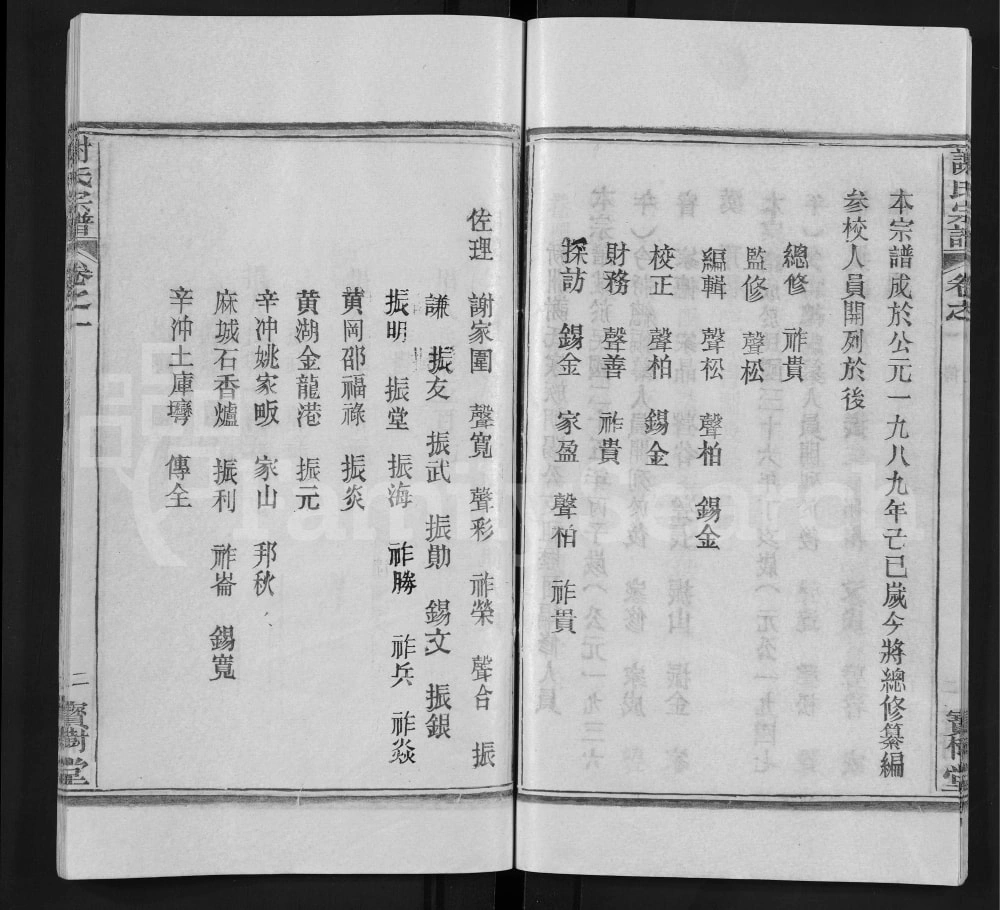 謝氏宗譜 卷之一 二 寶樹堂
本宗譜成於公元一九八九年己巳歲今將總修纂編
參校人員開列於後
總修 祚貴
監修 聲松
編輯 聲松 聲柏 錫金
校正 聲柏 錫金
財務 聲善 祚貴
探訪 錫金 家盈 聲柏 祚貴
佐理 謝家圍 聲寬 聲彩 祚榮 聲合 振
謙 振友 振武 振勛 錫文 振銀
振明 振堂 振海 祚勝 祚兵 祚焱
黄岡邵福祿 振炎
黄湖金龍港 振元
辛沖姚家畈 家山 邦秋
麻城石香爐 振利 祚崙 錫寬
辛沖土庫塆 傳全
謝氏宗譜 卷之一 二 寶樹堂
familysearch